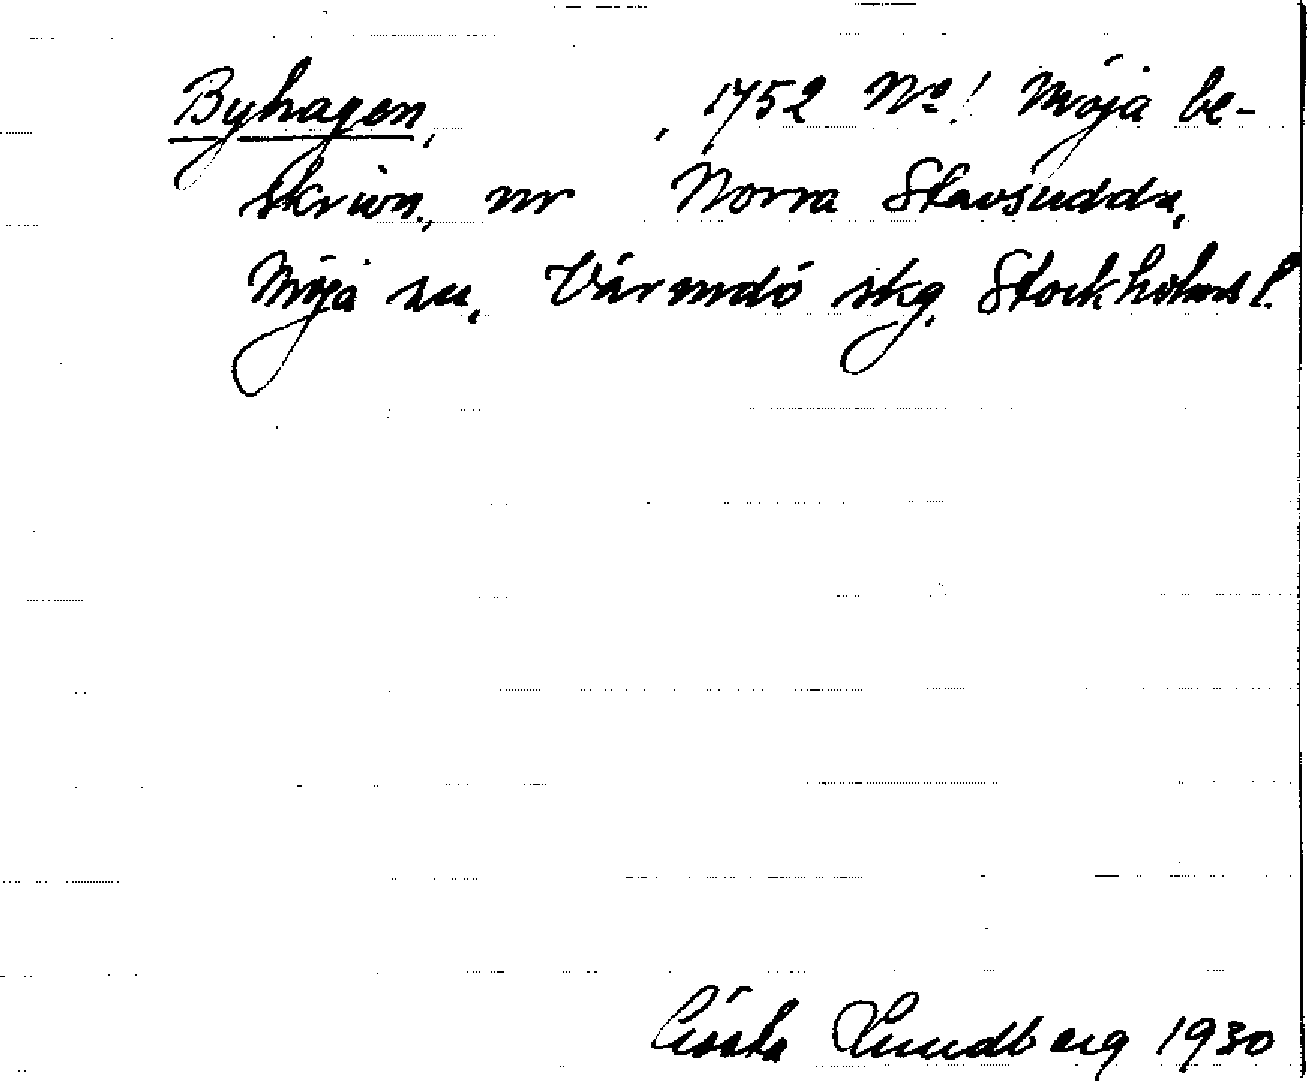 Byhagen, , 1752 No! Möja be-
skrivn., nr Norra Stavsudda,
Möja sn, Värmdö skg. Stockholms l.
Gösta Lundberg 1930